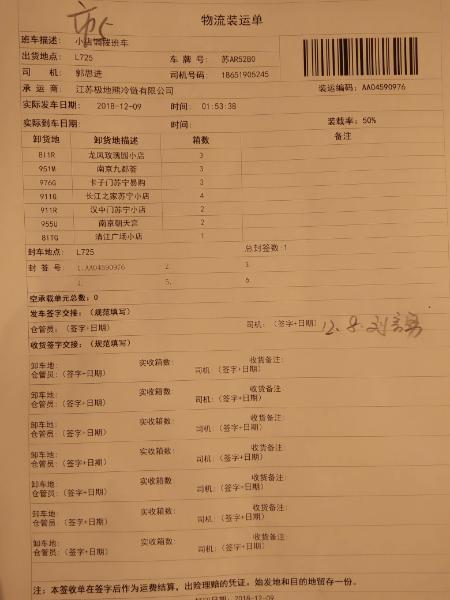 物流装运单
班车描述: 小店调拨班车
出货地点: L725 车 牌 号: 苏AR52B0
司 机: 郭思进 司机号码: 18651905245
承 运 商: 江苏极地熊冷链有限公司 装运编码: AA04590976
实际发车日期: 2018-12-09 时间: 01:53:38
实际到车日期: 时间: 装载率: 50%
卸货地 卸货地描述 箱数 备注
811R 龙凤玫瑰园小店 3
951M 南京九都荟 3
976G 卡子门苏宁易购 3
911Q 长江之家苏宁小店 4
911R 汉中门苏宁小店 2
955U 南京朝天宫 2
81TG 清江广场小店 1
封车地点: L725 总封签数 1
封 签 号: 1.AA04590976 2. 3.
4. 5. 6.
空承载单元总数: 0
发车签字交接: (规范填写)
仓管员: (签字+日期) 司机: (签字+日期) 12.8.
收货签字交接: (规范填写)
卸车地: 实收箱数: 收货备注:
仓管员: (签字+日期) 司机: (签字+日期)
卸车地: 实收箱数: 收货备注:
仓管员: (签字+日期) 司机: (签字+日期)
卸车地: 实收箱数: 收货备注:
仓管员: (签字+日期) 司机: (签字+日期)
卸车地: 实收箱数: 收货备注:
仓管员: (签字+日期) 司机: (签字+日期)
卸车地: 实收箱数: 收货备注:
仓管员: (签字+日期) 司机: (签字+日期)
卸车地: 实收箱数: 收货备注:
仓管员: (签字+日期) 司机: (签字+日期)
卸车地: 实收箱数: 收货备注:
仓管员: (签字+日期) 司机: (签字+日期)
注: 本签收单在签字后作为运费结算, 出险理赔的凭证, 始发地和目的地留存一份。
2018-12-09